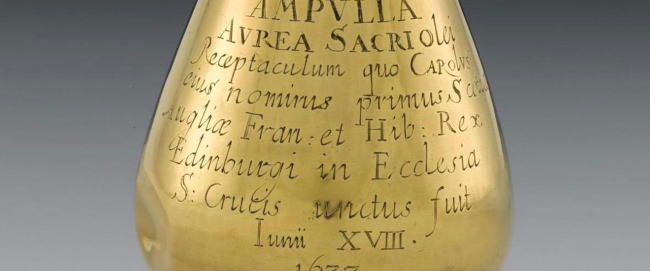 AMPVLLA
AVREA SACRI olei
Receptaculum quo CAROLVS
eius nominis primus
Angliæ Fran: et Hib: Rex
Ædinburgi in Ecclesia
S: Crucis unctus fuit
Iunii XVIII.
1633